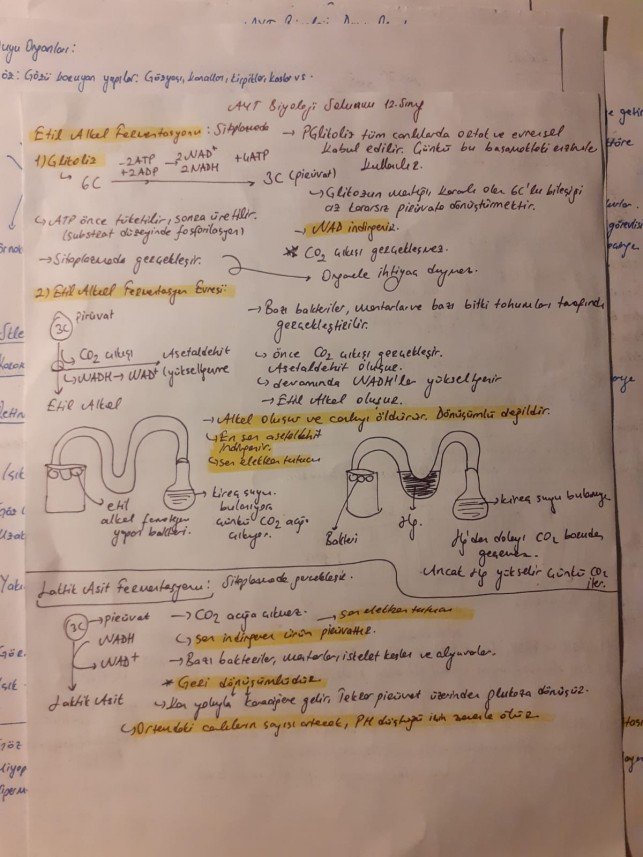 Duyu Organları:
Göz: Gözü koruyan yapılar: Gözyaşı, kanallar, kirpikler, kaslar vs.
AYT Biyoloji Solunum 12.Sınıf
Etil Alkol Fermentasyonu: Sitoplazmada
→ PGlikoliz tüm canlılarda ortak ve evrensel
kabul edilir. Çünkü bu basamaktaki enzimler
kullanılır.
1) Glikoliz
-2ATP +2ADP 2NAD+ 2NADH +4ATP
6C → 3C (pirüvat)
↳ Glikozun mantığı, kararlı olan 6C'lu bileşiği
az kararsız pirüvata dönüştürmektir.
↳ ATP önce tüketilir, sonra üretilir.
(substrat düzeyinde fosforilasyon)
→ NAD indirgenir.
* CO2 çıkışı gerçekleşmez.
→ Sitoplazmada gerçekleşir.
Organele ihtiyaç duymaz.
2) Etil Alkol Fermentasyon Evresi:
3C Pirüvat
→ Bazı bakteriler, mantarlar ve bazı bitki tohumları tarafından
gerçekleştirilir.
↳ CO2 çıkışı Asetaldehit
↳ NADH → NAD+ (yükseltgenme
Etil Alkol
↳ önce CO2 çıkışı gerçekleşir.
Asetaldehit oluşur.
↳ devamında NADH'ler yükseltgenir
→ Etil Alkol oluşur.
→ Alkol oluşur ve canlıyı öldürür. Dönüşümlü değildir.
↳ En son asetaldehit
indirgenir.
↳ son elektron tutucu
etil
alkol fermantasyonu
yapan bakteri.
kireç suyu
bulanıyor
çünkü CO2 açığa
çıkıyor.
Bakteri
Hg.
kireç suyu bulanmıyor
Hg'den dolayı CO2 borudan
geçemez.
Ancak Hg yükselir çünkü CO2
iter.
Laktik Asit Fermentasyonu: Sitoplazmada gerçekleşir.
3C → pirüvat
NADH
→ NAD+
Laktik Asit
→ CO2 açığa çıkmaz.
→ son elektron tutucu
↳ son indirgenen ürün pirüvattır.
→ Bazı bakteriler, mantarlar, iskelet kasları ve alyuvarlar.
* Geri dönüşümlüdür.
↳ Kan yoluyla karaciğere gelir. Tekrar pirüvat üzerinden glukoza dönüşür.
↳ Ortamdaki canlıların sayısı artacak, PH düştüğü için zamanla ölür